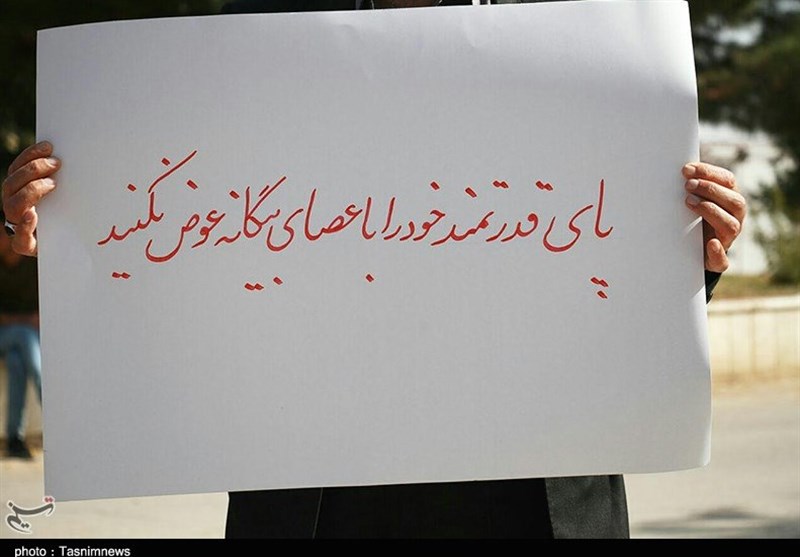 پای قدرتمند خود را با عصای بیگانه عوض نکنید
تسنیم
photo : Tasnimnews